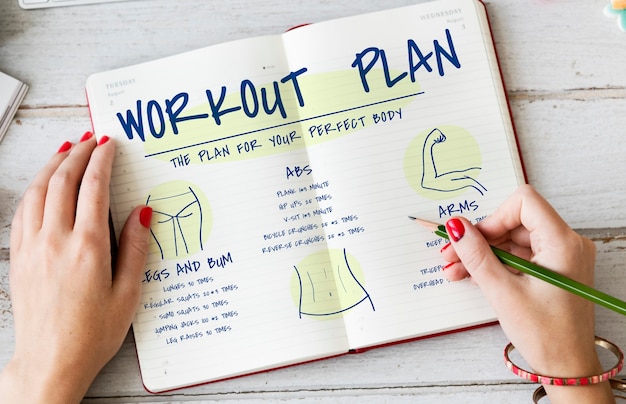 TUESDAY
WEDNESDAY
WORKOUT PLAN
THE PLAN FOR YOUR PERFECT BODY
ABS
PLANK 1*3 MINUTE
20 TIMES
V-SIT 1*3 MINUTE
BICYCLE CRUNCHES 20*3 TIMES
REVERSE CRUNCHES 20*3 TIMES
LEGS AND BUM
LUNGES 30 TIMES
REGULAR SQUATS 20*3 TIMES
SUMO SQUATS 30 TIMES
JUMPING JACKS 100 TIMES
LEG RAISES 30 TIMES
ARMS
OVERHEAD